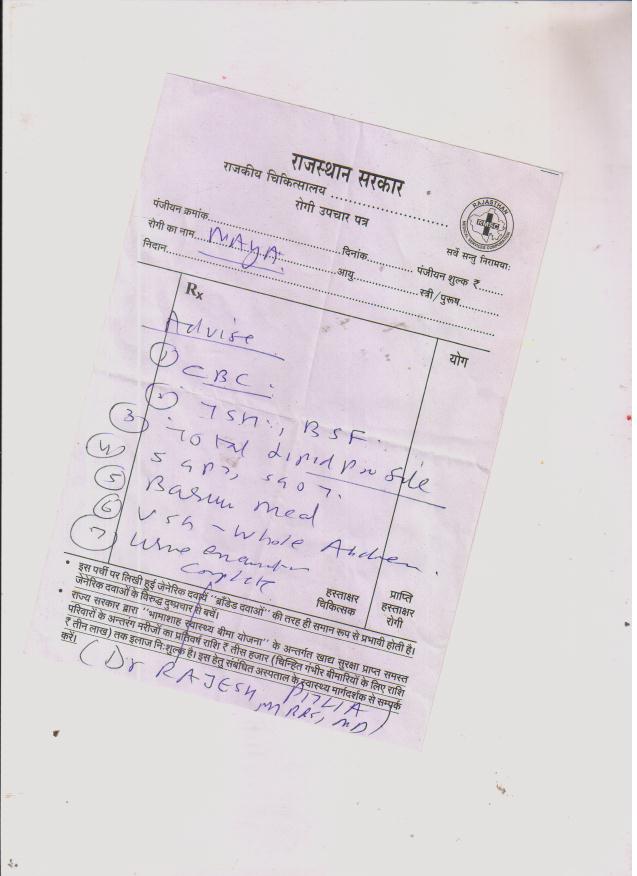 राजस्थान सरकार
राजकीय चिकित्सालय ..............................
रोगी उपचार पत्र
RAJASTHAN
MEDICAL SERVICES CORPORATION
सर्वे सन्तु निरामयाः
पंजीयन क्रमांक.............................. दिनांक.............. पंजीयन शुल्क ₹......
रोगी का नाम MAYA .............. आयु.............. स्त्री/पुरूष..............
निदान..............................
Rx
योग
Advise
① CBC.
② TSH., BSF.
③ Total Lipid Profile
④ SGPT, SGOT.
⑤ 
⑥ USG - Whole Abdomen.
⑦ Urine
Complete
हस्ताक्षर चिकित्सक
प्राप्ति हस्ताक्षर रोगी
• इस पर्ची पर लिखी हुई जेनेरिक दवायें "ब्राँडेड दवाओं" की तरह ही समान रूप से प्रभावी होती है।
जेनेरिक दवाओं के विरुद्ध दुष्प्रचार से बचें।
• राज्य सरकार द्वारा "भामाशाह स्वास्थ्य बीमा योजना" के अन्तर्गत खाद्य सुरक्षा प्राप्त समस्त
परिवारों के अन्तरंग मरीजों का प्रतिवर्ष राशि ₹ तीस हजार (चिन्हित गंभीर बीमारियों के लिए राशि
₹ तीन लाख) तक इलाज निःशुल्क है। इस हेतु संबंधित अस्पताल के स्वास्थ्य मार्गदर्शक से सम्पर्क
करें।
(Dr RAJESH
MBBS, MD)